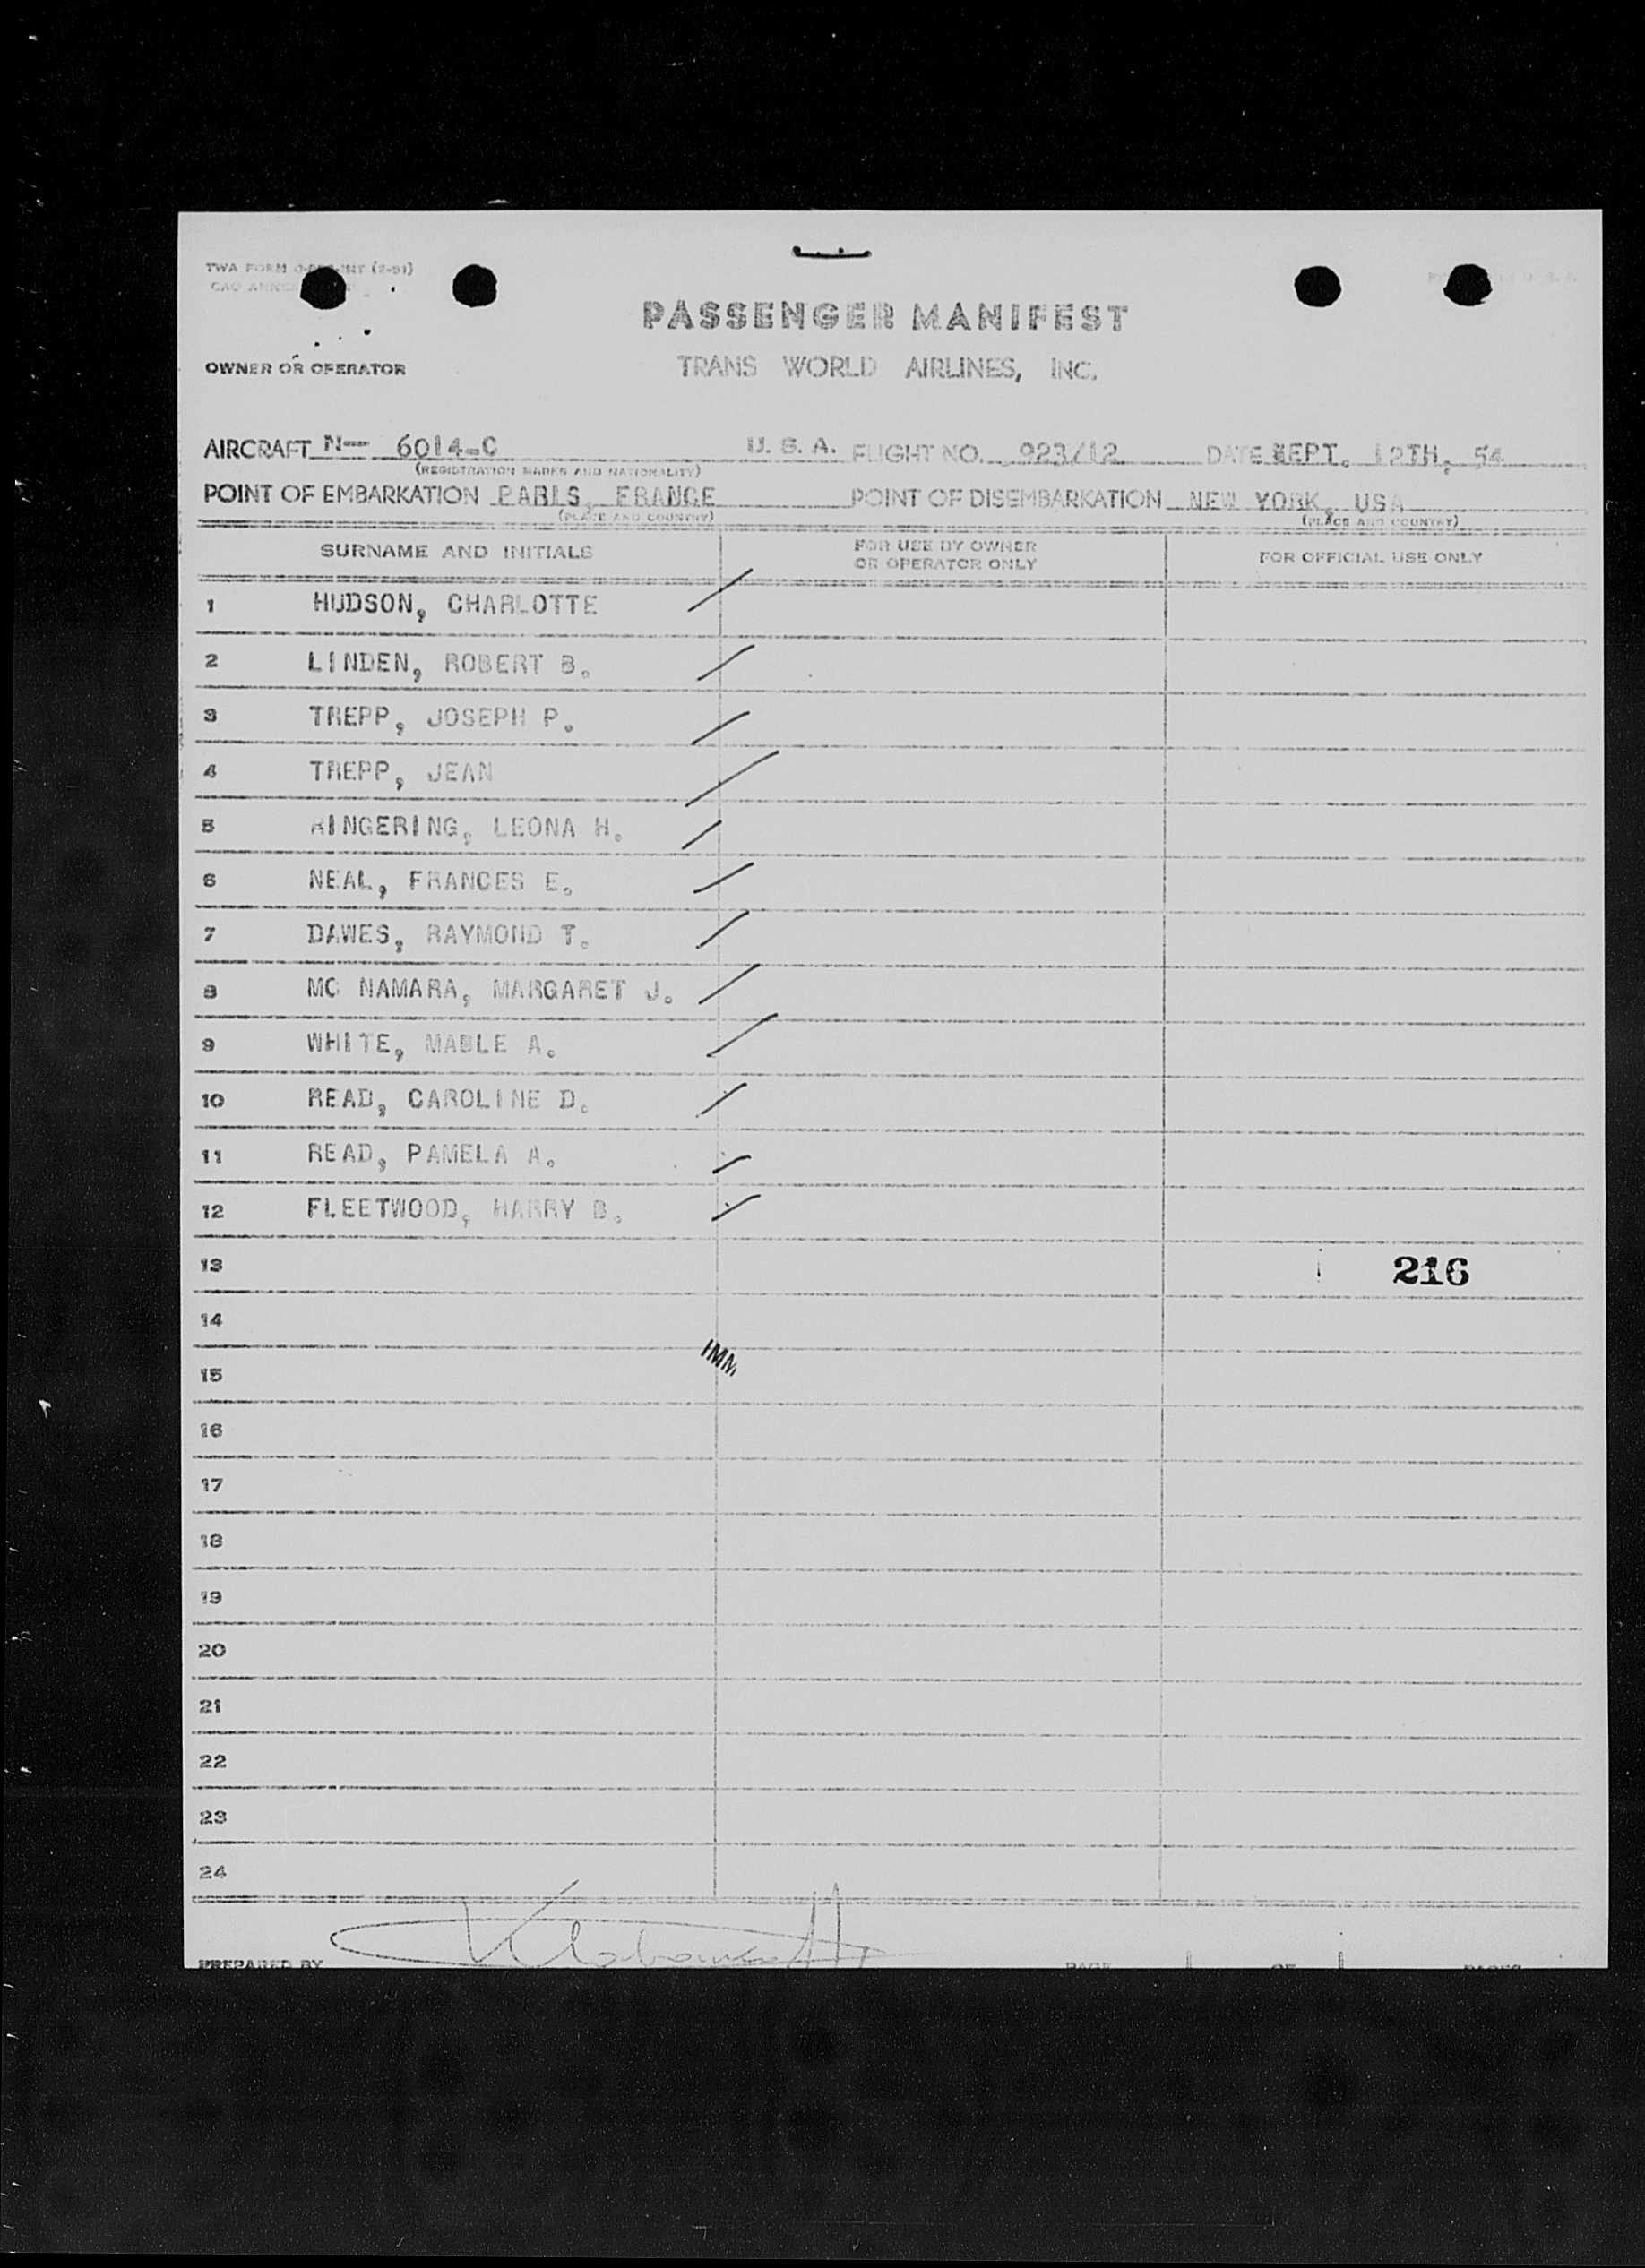 TWA FORM (2-51)
PASSENGER MANIFEST
OWNER OR OPERATOR TRANS WORLD AIRLINES, INC.
AIRCRAFT N— 6014-C U. S. A. FLIGHT NO. 923/12 DATE SEPT. 12TH, 54
(REGISTRATION MARKS AND NATIONALITY)
POINT OF EMBARKATION PARIS, FRANCE POINT OF DISEMBARKATION NEW YORK, USA
(PLACE AND COUNTRY) (PLACE AND COUNTRY)
SURNAME AND INITIALS FOR USE BY OWNER OR OPERATOR ONLY FOR OFFICIAL USE ONLY
1 HUDSON, CHARLOTTE
2 LINDEN, ROBERT B.
3 TREPP, JOSEPH P.
4 TREPP, JEAN
5 RINGERING, LEONA H.
6 NEAL, FRANCES E.
7 DAWES, RAYMOND T.
8 MC NAMARA, MARGARET J.
9 WHITE, MABLE A.
10 READ, CAROLINE D.
11 READ, PAMELA A.
12 FLEETWOOD, HARRY B.
13 216
14
IMM
15
16
17
18
19
20
21
22
23
24
PREPARED BY PAGE OF PAGES